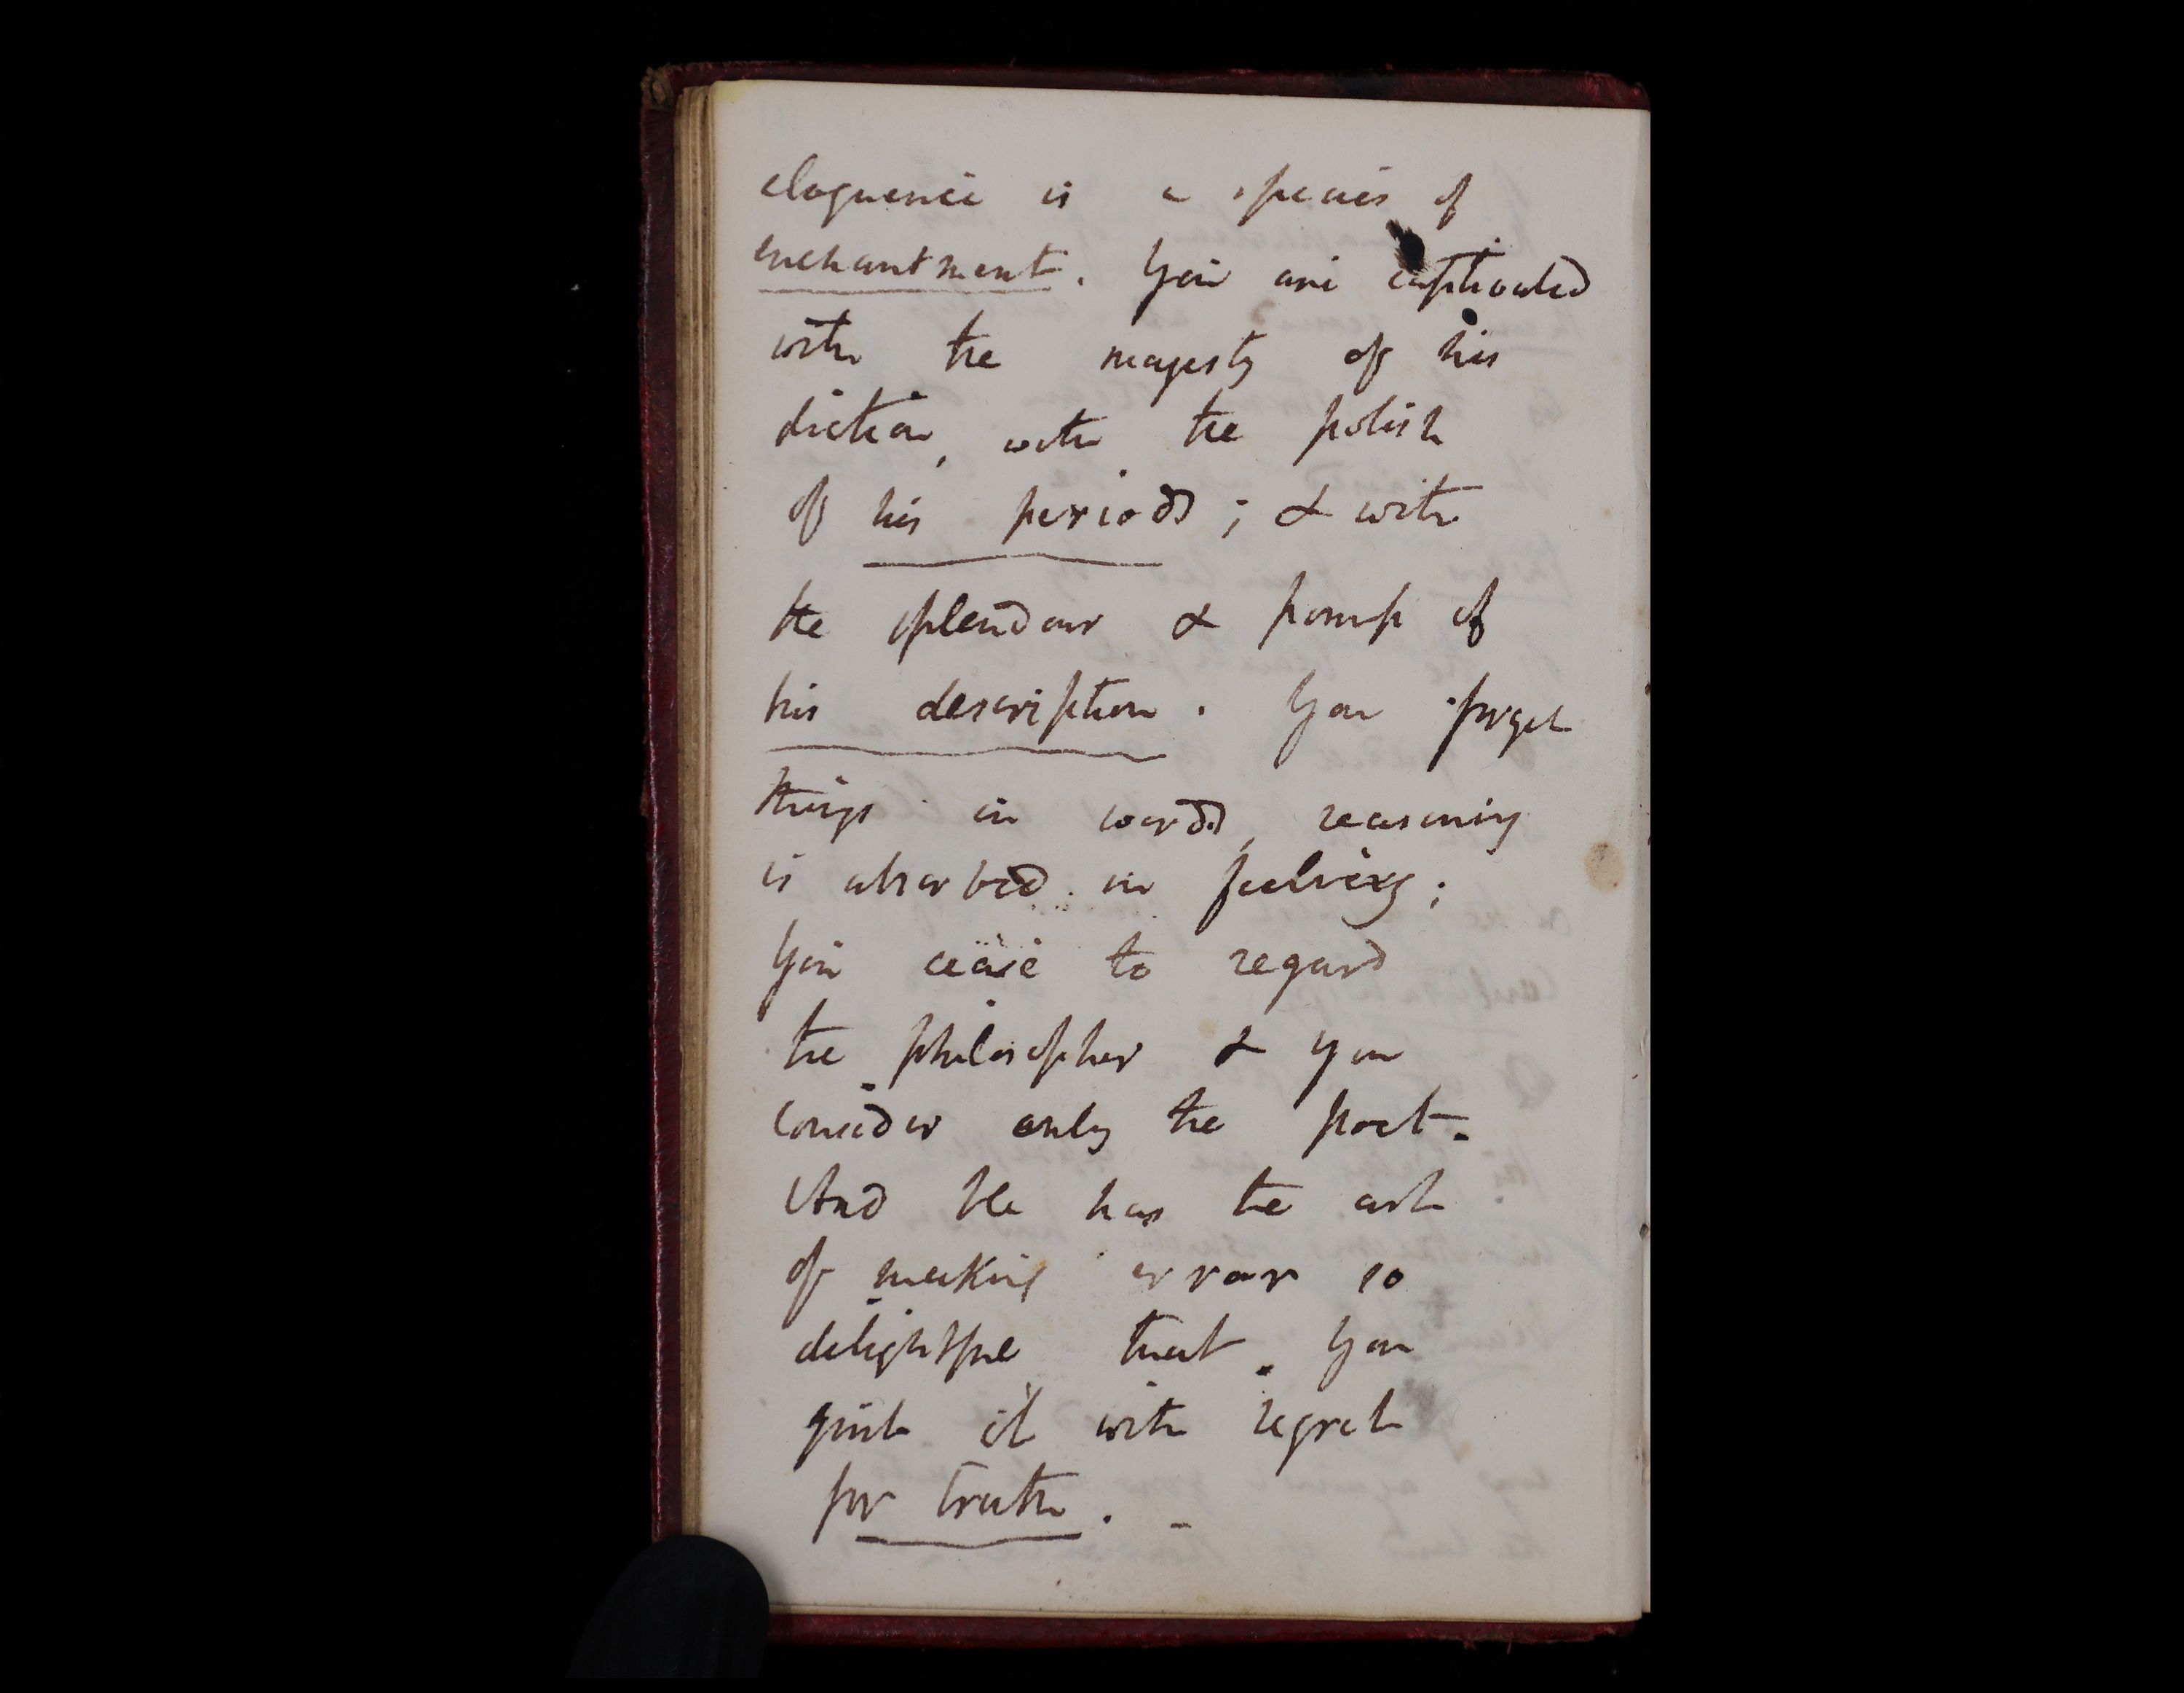 eloquence is a species of
enchantment. You are captivated
with the majesty of his
diction, with the polish
of his periods; & with
the splendour & pomp of
his description. You forget
things in words, reasoning
is absorbed in feeling;
You cease to regard
the philosopher & you
consider only the poet.
And He has the art
of making error so
delightful that you
quit it with regret
for truth. -